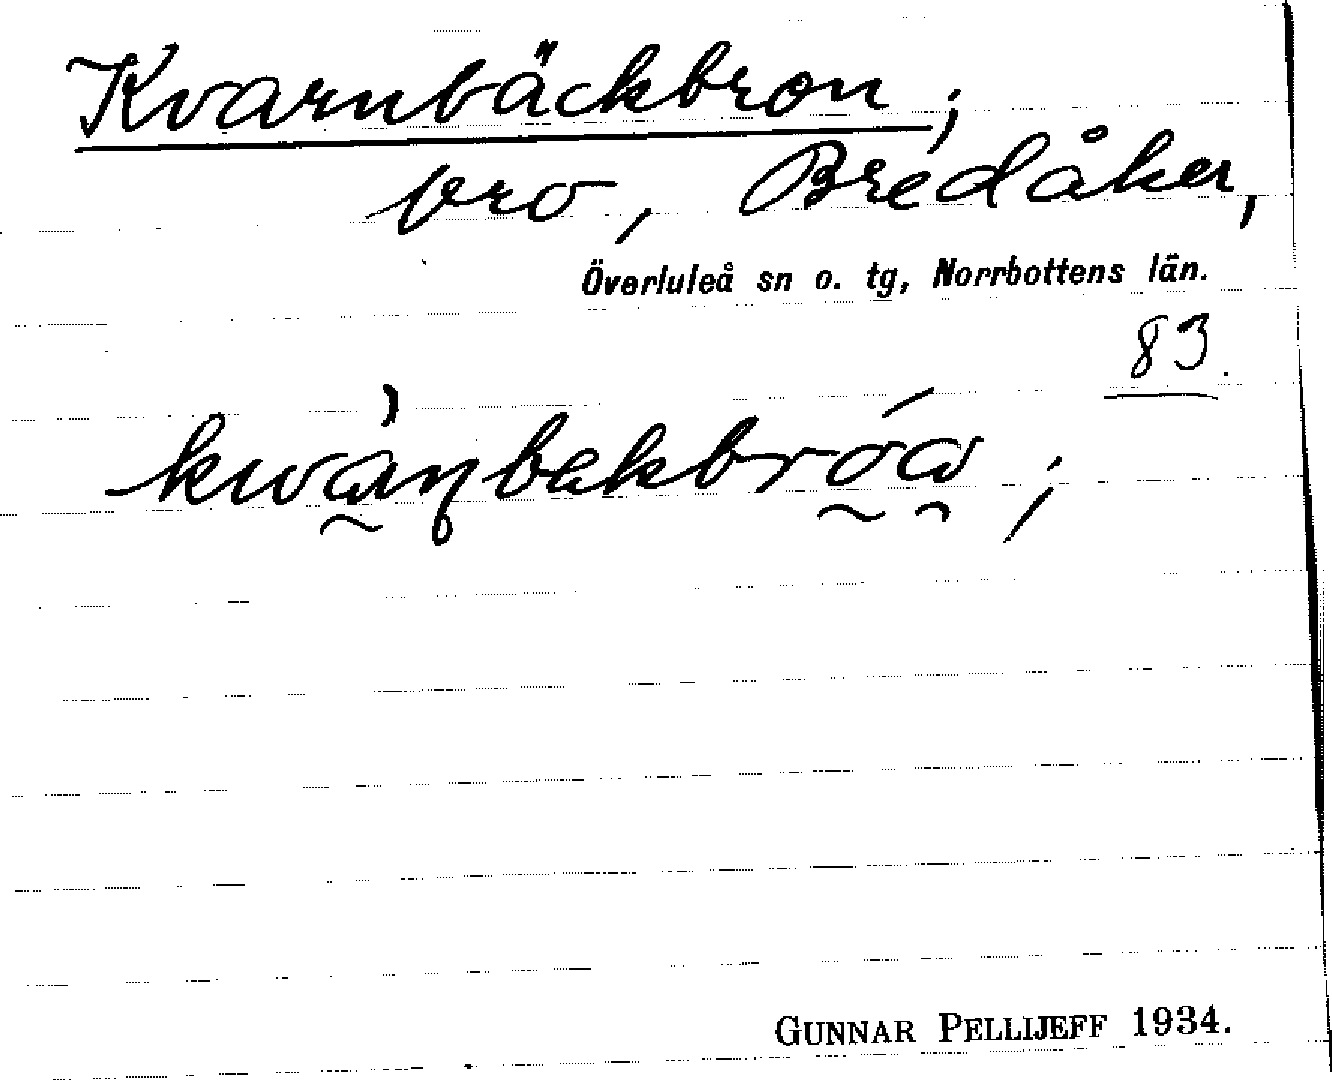 Kvarnbäckbron;
bro, Bredåker,
Överluleå sn o. tg, Norrbottens län.
83.
GUNNAR PELLIJEFF 1934.